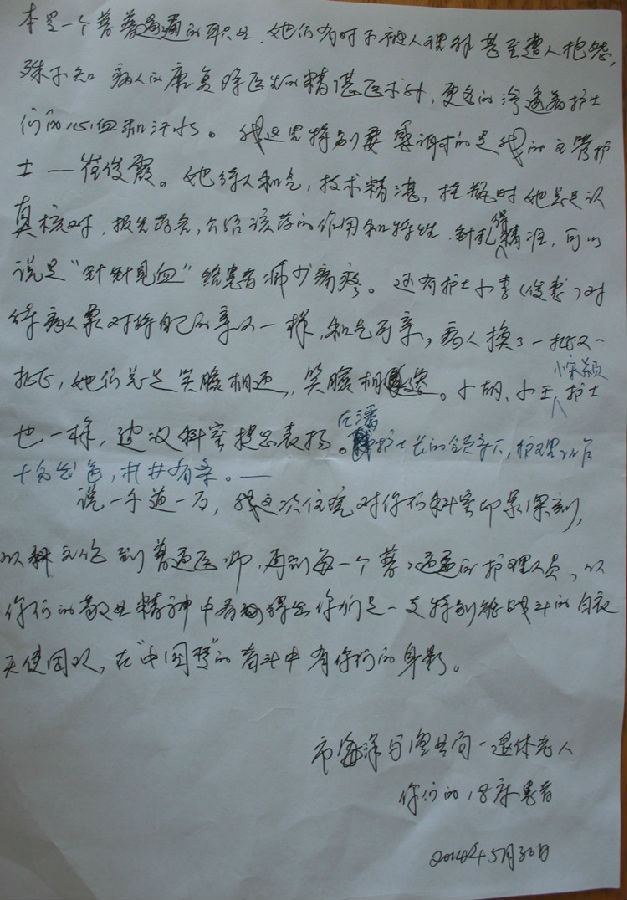 本是一个普普通通的职业,她们有时不被人理解甚至遭人抱怨,
殊不知病人的康复除医生的精湛医术外,更多的渗透着护士
们的心血和汗水。我这里特别要感谢的是我的主管护
士——崔俊霞。她待人和气,技术精湛,挂瓶时她总是认
真核对,报先药名,介绍该药的作用和特性,针扎得精准,可以
说是“针针见血”给患者减少痛疼。还有护士小李(俊秀)对
待病人象对待自己的亲人一样,和气可亲,病人换了一批又一
批,她们总是笑脸相迎,笑脸相送。小胡、小王惊颖护士
也一样,建议科室提出表扬。在潘护士长的领导下,护理工作
十分出色,井井有条。——
说一千道一万,我这次住院对你们科室印象深刻,
从科主任到普通医师,再到每一个普通通的护理人员,从
你们的敬业精神中看得出你们是一支特别能战斗的白衣
天使团队,在“中国梦”的奋斗中有你们的身影。
市海洋与渔业局一退休老人
你们的18床患者
2014年5月30日